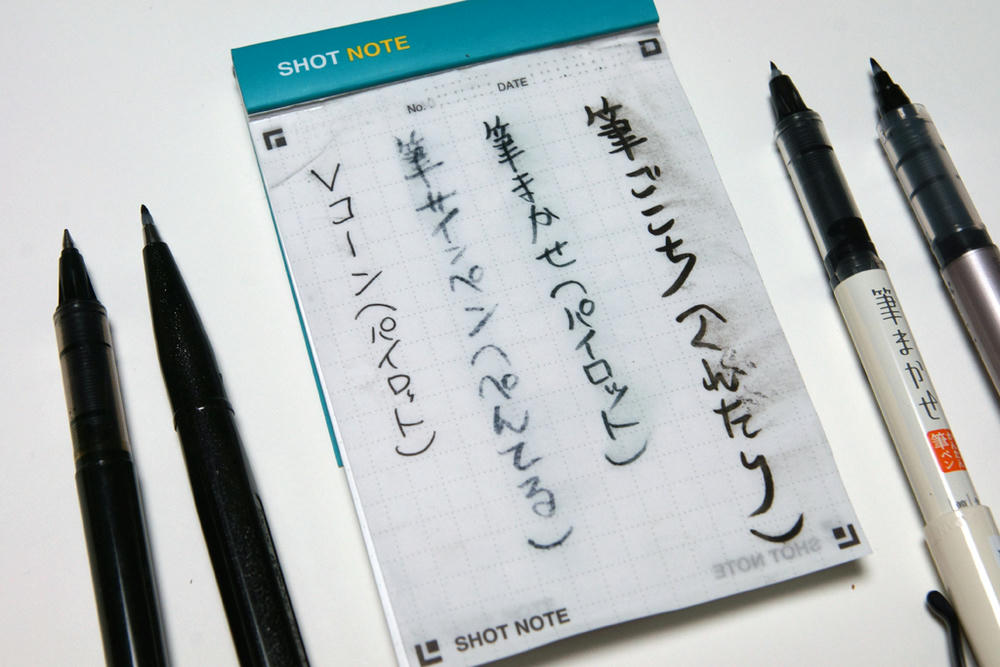 SHOT NOTE
No.
DATE
筆ごこち(くれたけ)
筆まかせ(パイロット)
筆サインペン(ぺんてる)
Vコーン(パイロット)
SHOT NOTE
SHOT NOTE
筆まかせ
筆ペン